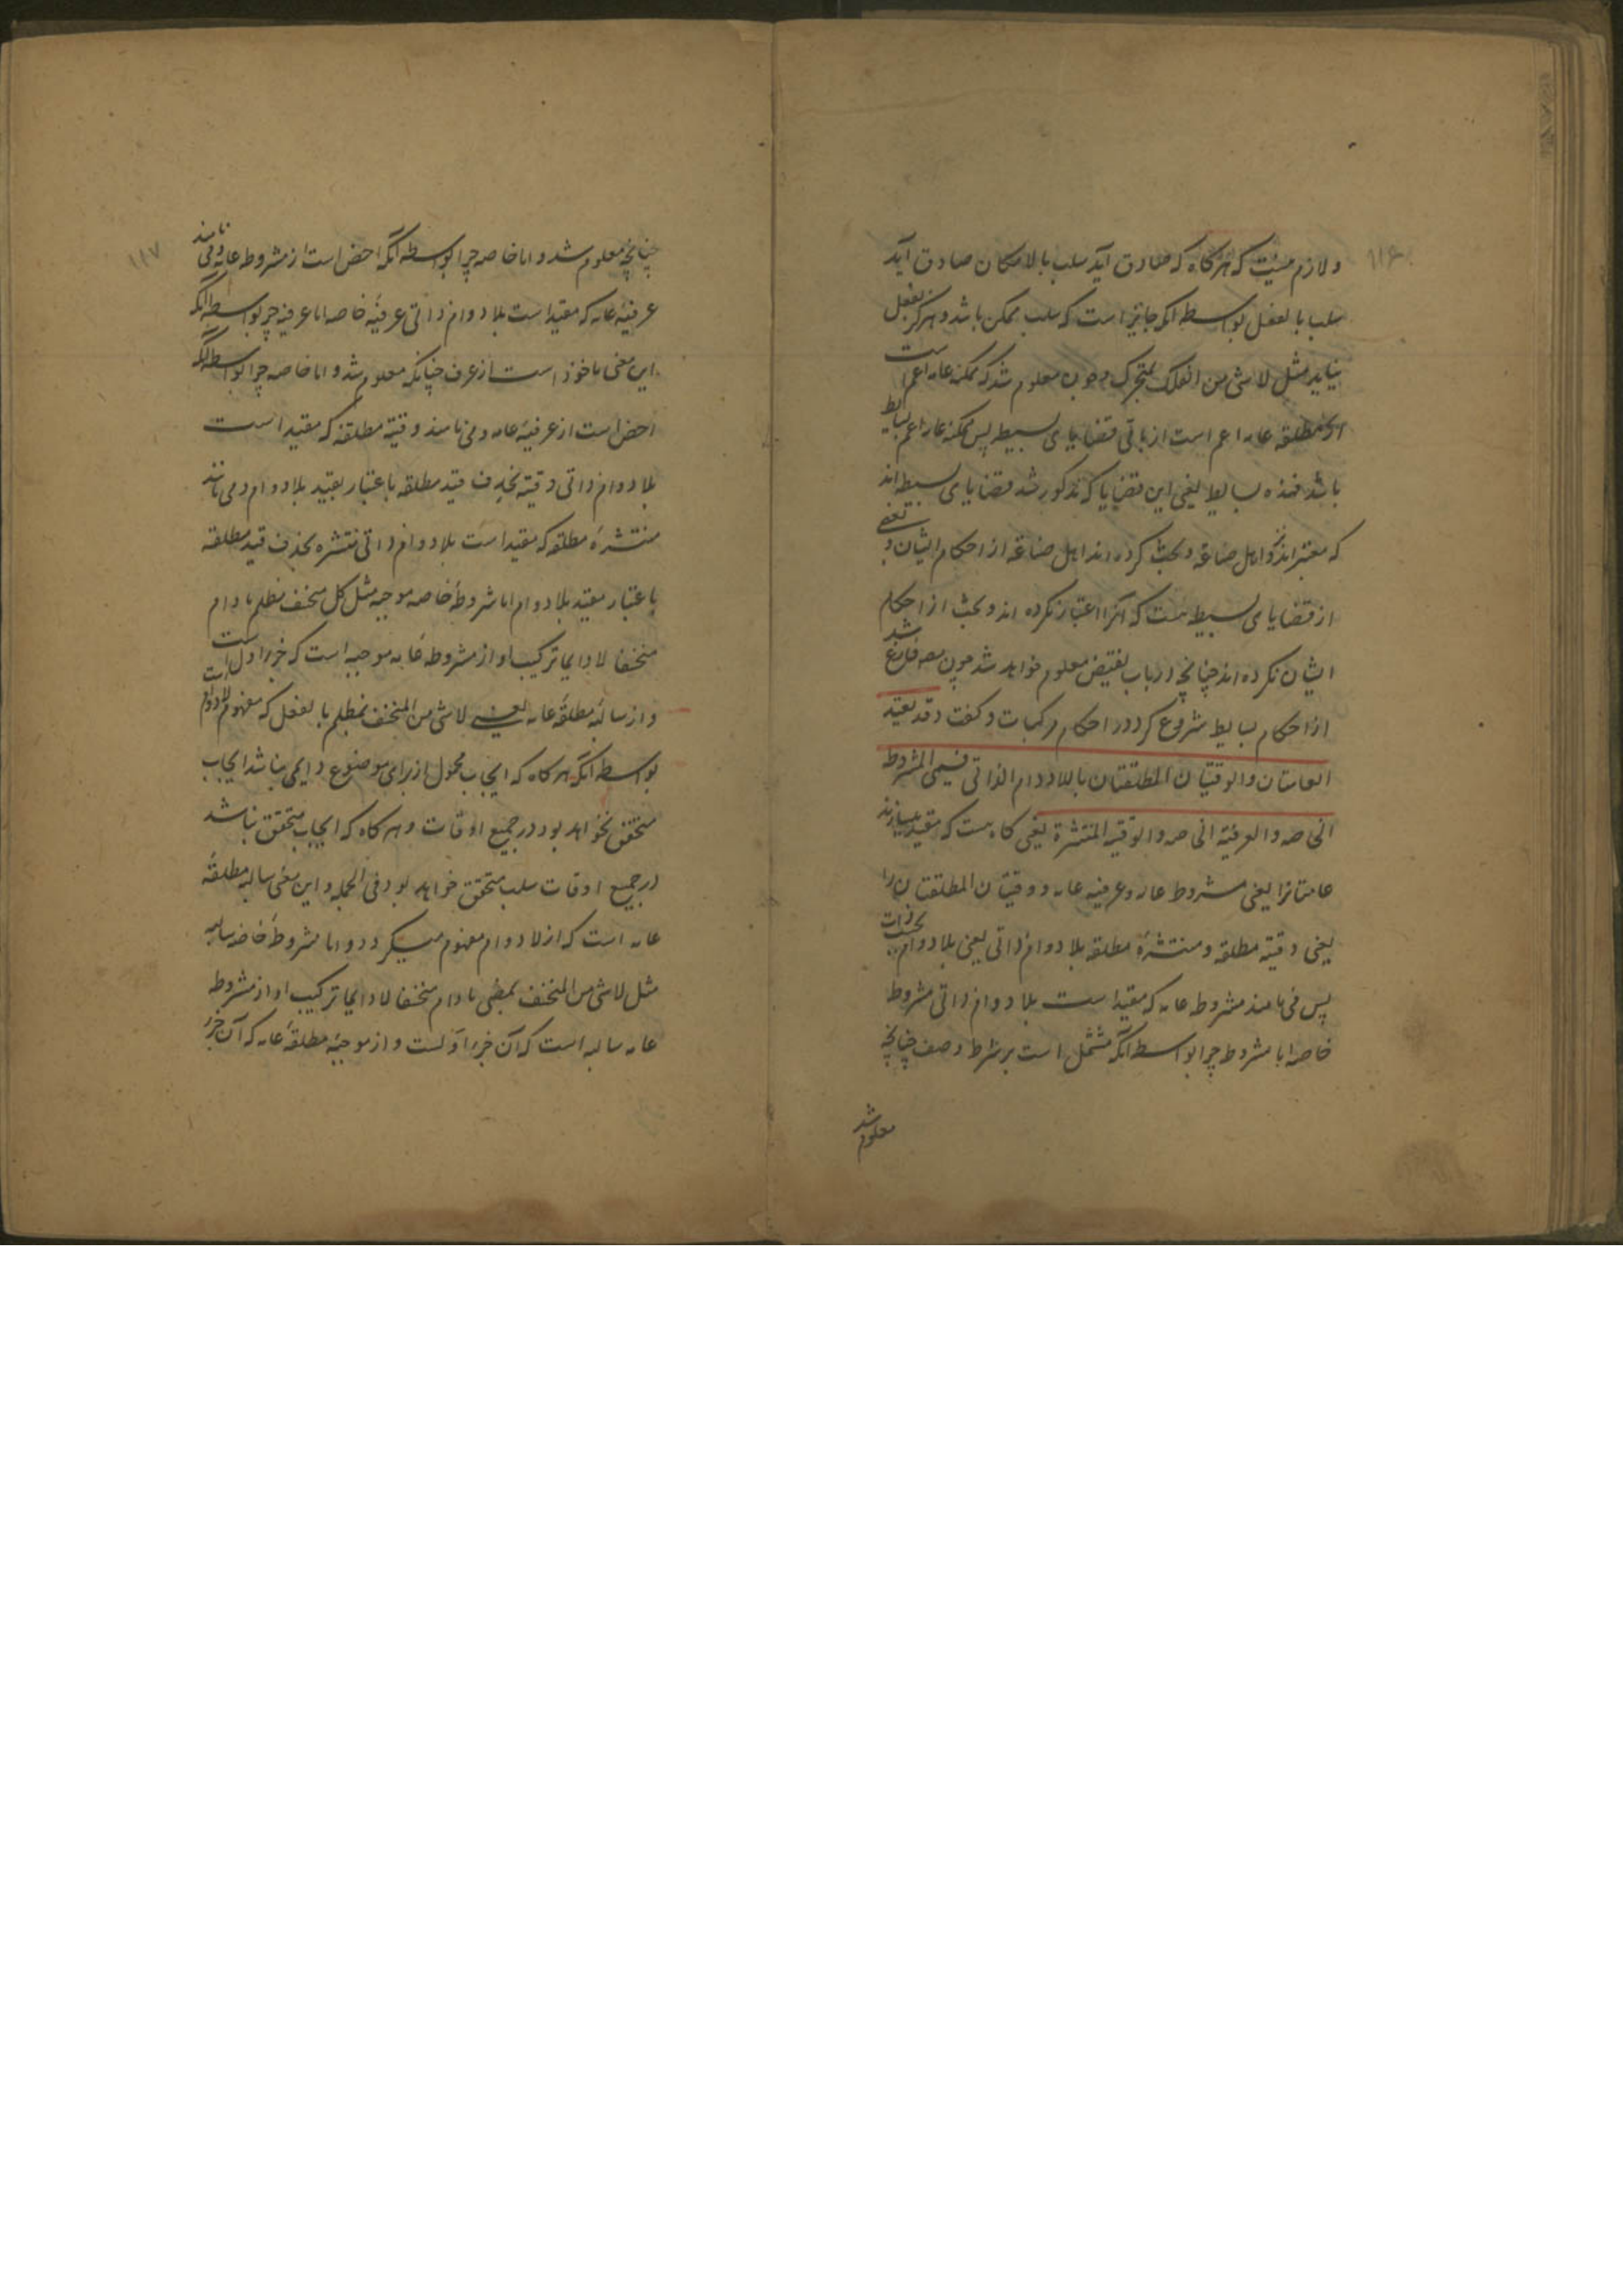 ۱۱۶
و لازم نیست که هرکاه که صادق آید سلب بالامکان صادق آید
سلب بالفعل بواسطه آنکه جایز است که سلب ممکن باشد و هرکز بفعل
نیاید مثل لا شی من الفلک بمتحرک و چون معلوم شد که ممکنه عامه اعم است
از مطلقه عامه اعم است از باقی قضایای بسیطه پس ممکنه عامه اعم بسایط
باشد فهذه بسایط یعنی این قضایا که مذکور شد قضایای بسیطه اند
که معتبر اند نزد اهل صناعه و بحث کرده اند اهل صناعه از احکام ایشان و بعضی
از قضایای بسیطه هست که آنرا اعتبار نکرده اند و بحث از احکام
ایشان نکرده اند چنانچه در باب نقیض معلوم خواهد شد چون مصه فارغ شد
از احکام بسایط شروع کرد در احکام مرکبات و کفت و قد تقید
العامتان والوقتیتان المطلقتان باللادوام الذاتی فیسمی المشروطة
الخاصه والعرفیة الخاصه والوقتیه المنتشرة یعنی کاه هست که مقید میسازند
عامتانرا یعنی مشروطه عامه و عرفیه عامه و وقتیتان المطلقتان را
یعنی وقتیه مطلقه و منتشرهٔ مطلقه بلادوام ذاتی یعنی بلادوام بحسب ذات
پس می نامند مشروطه عامه که مقید است بلادوام ذاتی مشروطه
خاصه اما مشروطه چرا بواسطه آنکه مشتمل است بر شرط وصف چنانچه
معلوم شد
۱۱۷
چنانچه معلوم شد و اما خاصه چرا بواسطه آنکه اخص است از مشروطه عامه و می نامند
عرفیه عامه که مقید است بلادوام ذاتی عرفیهٔ خاصه اما عرفیه چرا بواسطه آنکه
این معنی ماخوذ است از عرف چنانکه معلوم شد و اما خاصه چرا بواسطه آنکه
اخص است از عرفیه عامه و می نامند وقتیه مطلقه که مقید است
بلادوام ذاتی وقتیه بحذف قید مطلقه باعتبار تقیید بلادوام و می نامند
منتشرهٔ مطلقه که مقید است بلادوام ذاتی منتشره بحذف قید مطلقه
باعتبار مقید بلادوام اما مشروطهٔ خاصه موجبه مثل کل منخسف مظلم مادام
منخسفا لا دایما ترکیب او از مشروطه عامه موجبه است که جزء اول است
و از سالبهٔ مطلقهٔ عامه یعنی لا شی من المنخسف بمظلم بالفعل که مفهوم لادوام است
بواسطه آنکه هر کاه که ایجاب محمول از برای موضوع دایمی نباشد ایجاب
متحقق نخواهد بود در جمیع اوقات و هر کاه که ایجاب متحقق نباشد
در جمیع اوقات سلب متحقق خواهد بود فی الجمله و این معنی سالبه مطلقهٔ
عامه است که از لادوام مفهوم میکردد و اما مشروطهٔ خاصه سالبه
مثل لا شی من المنخسف بمضی مادام منخسفا لا دایما ترکیب او از مشروطه
عامه سالبه است که آن جزء اولست و از موجبهٔ مطلقهٔ عامه که آن جزء